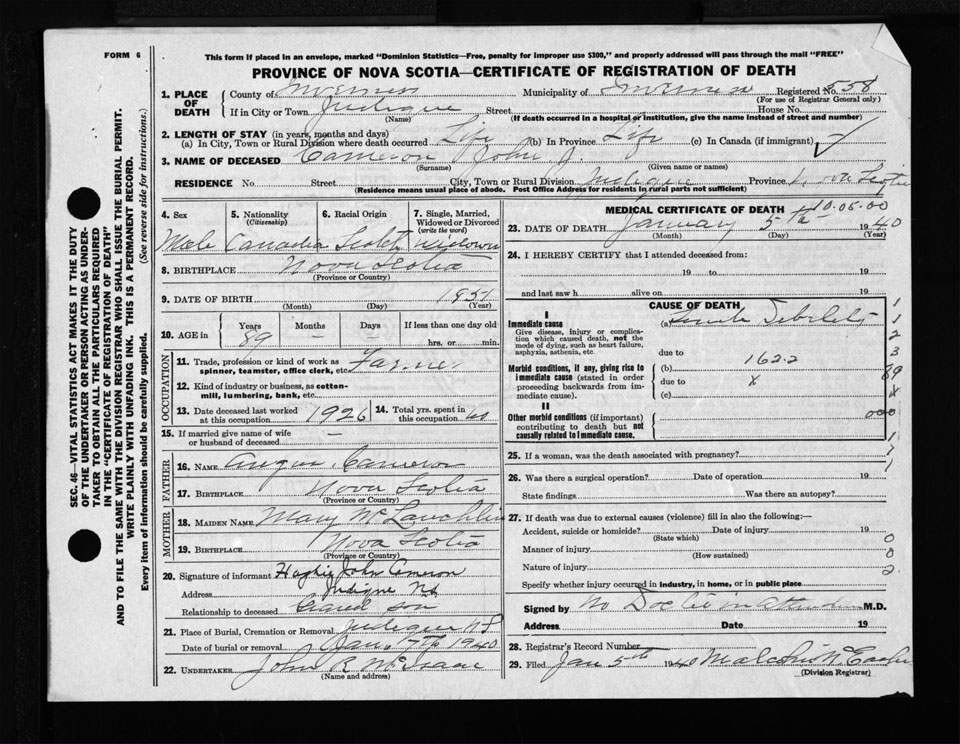 FORM 6
This form if placed in an envelope, marked "Dominion Statistics—Free, penalty for improper use $300," and properly addressed will pass through the mail "FREE"
PROVINCE OF NOVA SCOTIA—CERTIFICATE OF REGISTRATION OF DEATH
1. PLACE OF DEATH County of Inverness Municipality of Inverness Registered No. 558
(For use of Registrar General only)
If in City or Town Judique Street House No.
(Name) (If death occurred in a hospital or institution, give the name instead of street and number)
2. LENGTH OF STAY (in years, months and days)
(a) In City, Town or Rural Division where death occurred Life (b) In Province Life (c) In Canada (if immigrant) ✓
3. NAME OF DECEASED Cameron John J.
(Surname) (Given name or names)
RESIDENCE No. Street City, Town or Rural Division Judique Province Nova Scotia
(Residence means usual place of abode. Post Office Address for residents in rural parts not sufficient)
4. Sex 5. Nationality (Citizenship) 6. Racial Origin 7. Single, Married, Widowed or Divorced (write the word)
Male Canadia Scotch widown
8. BIRTHPLACE Nova Scotia
(Province or Country)
9. DATE OF BIRTH 1851
(Month) (Day) (Year)
10. AGE in Years Months Days If less than one day old
89 — — hrs. or min.
OCCUPATION
11. Trade, profession or kind of work as spinner, teamster, office clerk, etc. Farmer
12. Kind of industry or business, as cotton-mill, lumbering, bank, etc.
13. Date deceased last worked at this occupation 1926 14. Total yrs. spent in this occupation 40
15. If married give name of wife or husband of deceased —
FATHER
16. NAME Angus Cameron
17. BIRTHPLACE Nova Scotia
(Province or Country)
MOTHER
18. MAIDEN NAME Mary McLauchlin
19. BIRTHPLACE Nova Scotia
(Province or Country)
20. Signature of informant Hughie John Cameron
Address Judique NS
Relationship to deceased son
21. Place of Burial, Cremation or Removal Judique NS
Date of burial or removal Jan. 7th 1940
22. UNDERTAKER John R McIsaac
(Name and address)
MEDICAL CERTIFICATE OF DEATH 10.05.00
23. DATE OF DEATH January 5th 1940
(Month) (Day) (Year)
24. I HEREBY CERTIFY that I attended deceased from:
19 to 19
and last saw h alive on 19
CAUSE OF DEATH
I
Immediate cause (a) Senile Debility
Give disease, injury or complication which caused death, not the mode of dying, such as heart failure, asphyxia, asthenia, etc.
due to
Morbid conditions, if any, giving rise to immediate cause (stated in order proceeding backwards from immediate cause).
(b) 162.2
due to x
(c)
II
Other morbid conditions (if important) contributing to death but not causally related to immediate cause.
000
1
1
2
3
89
x
1
7
1
25. If a woman, was the death associated with pregnancy?
26. Was there a surgical operation? Date of operation 19
State findings Was there an autopsy?
27. If death was due to external causes (violence) fill in also the following:—
Accident, suicide or homicide? Date of injury 19
(State which)
Manner of injury 0
(How sustained) 0
Nature of injury 2
Specify whether injury occurred in industry, in home, or in public place
Signed by No Doctor in M.D.
Address Date 19
28. Registrar's Record Number
29. Filed Jan 5th 1940 Malcolm
(Division Registrar)
SEC. 46—VITAL STATISTICS ACT MAKES IT THE DUTY
OF THE UNDERTAKER OR PERSON ACTING AS UNDER-
TAKER TO OBTAIN ALL THE PARTICULARS REQUIRED
IN THE "CERTIFICATE OF REGISTRATION OF DEATH"
AND TO FILE THE SAME WITH THE DIVISION REGISTRAR WHO SHALL ISSUE THE BURIAL PERMIT.
WRITE PLAINLY WITH UNFADING INK. THIS IS A PERMANENT RECORD.
Every item of information should be carefully supplied. (See reverse side for instructions.)